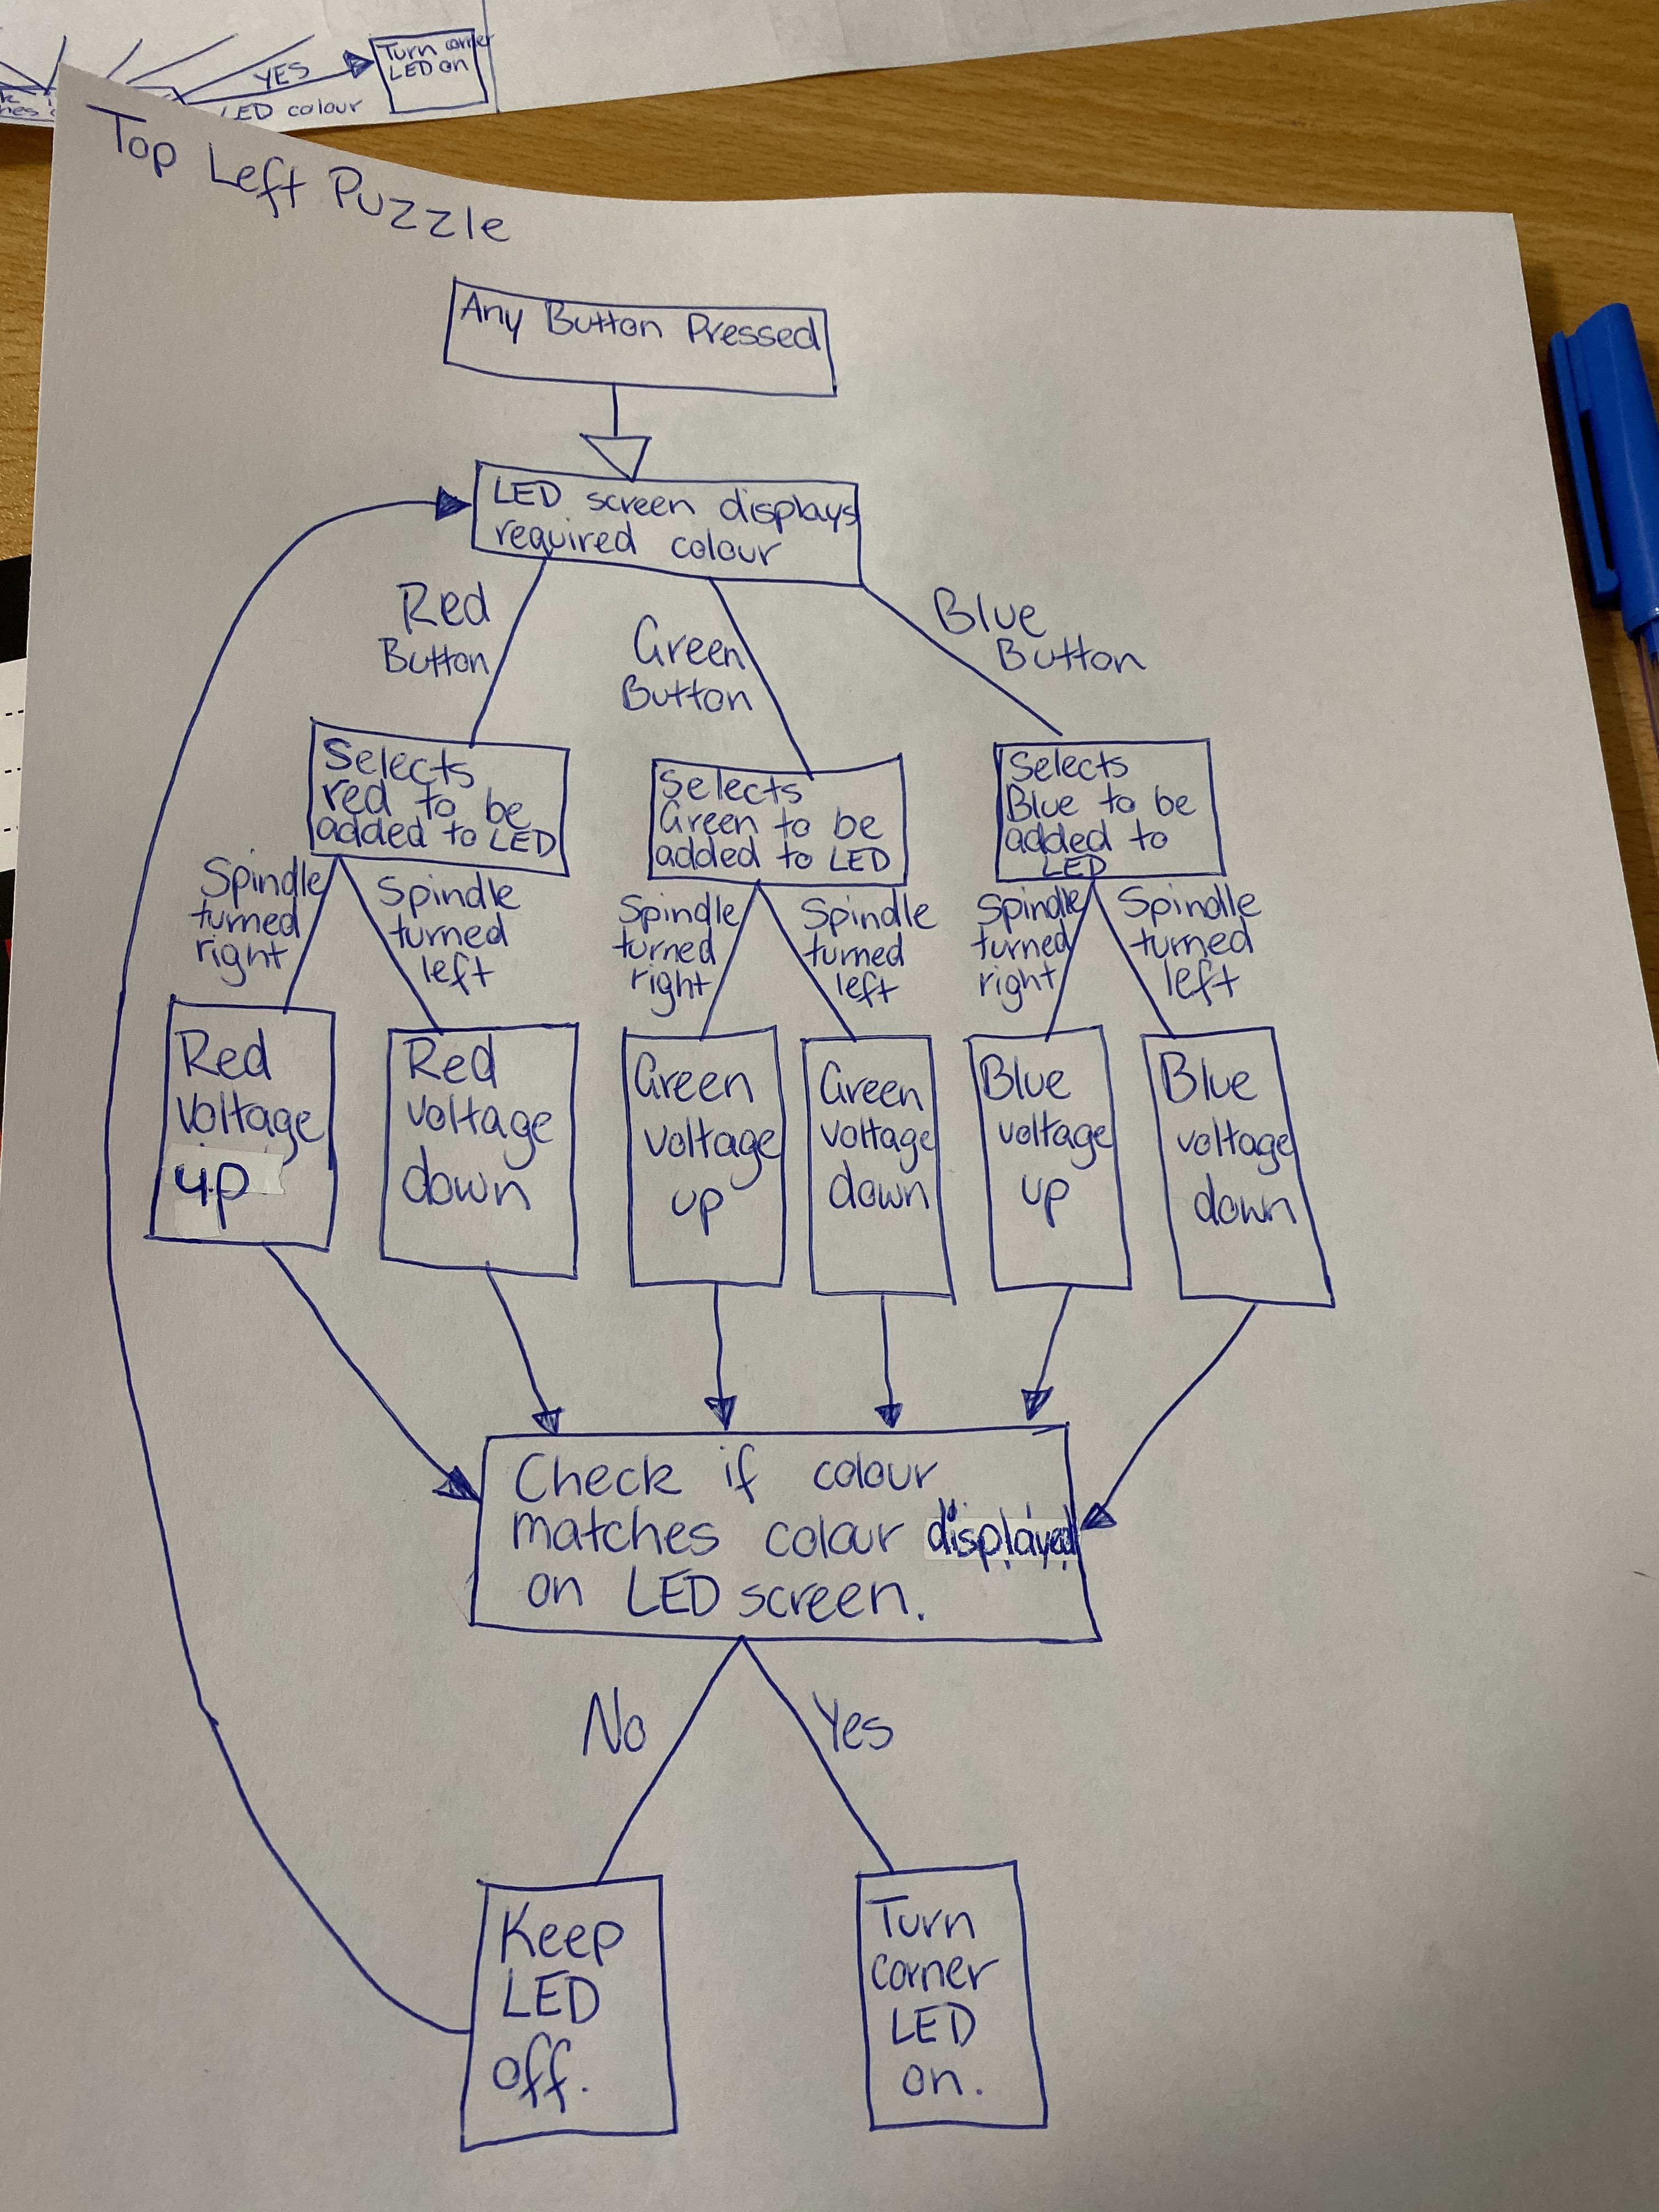 Turn corner
LED on
YES
LED colour
Top Left Puzzle
Any Button Pressed
LED screen displays
required colour
Red
Button
Green
Button
Blue
Button
Selects
red to be
added to LED
Selects
Green to be
added to LED
Selects
Blue to be
added to
LED
Spindle
turned
right
Spindle
turned
left
Spindle
turned
right
Spindle
turned
left
Spindle
turned
right
Spindle
turned
left
Red
voltage
up
Red
voltage
down
Green
voltage
up
Green
voltage
down
Blue
voltage
up
Blue
voltage
down
Check if colour
matches colour displayed
on LED screen.
No
Yes
Keep
LED
off.
Turn
corner
LED
on.